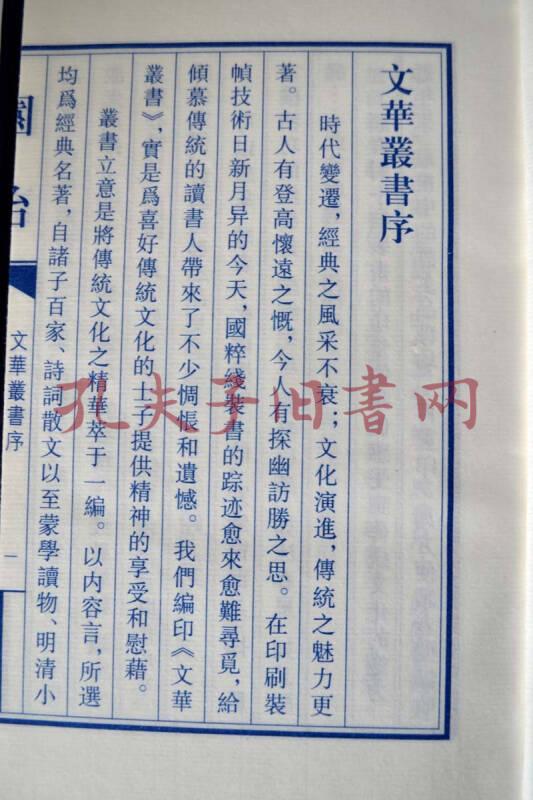 文華叢書序
時代變遷，經典之風采不衰；文化演進，傳統之魅力更
著。古人有登高懷遠之慨，今人有探幽訪勝之思。在印刷裝
幀技術日新月异的今天，國粹綫裝書的踪迹愈來愈難尋覓，給
傾慕傳統的讀書人帶來了不少惆悵和遺憾。我們編印《文華
叢書》，實是爲喜好傳統文化的士子提供精神的享受和慰藉。
叢書立意是將傳統文化之精華萃于一編。以内容言，所選
均爲經典名著，自諸子百家、詩詞散文以至蒙學讀物、明清小
文華叢書序
一
孔夫子旧书网